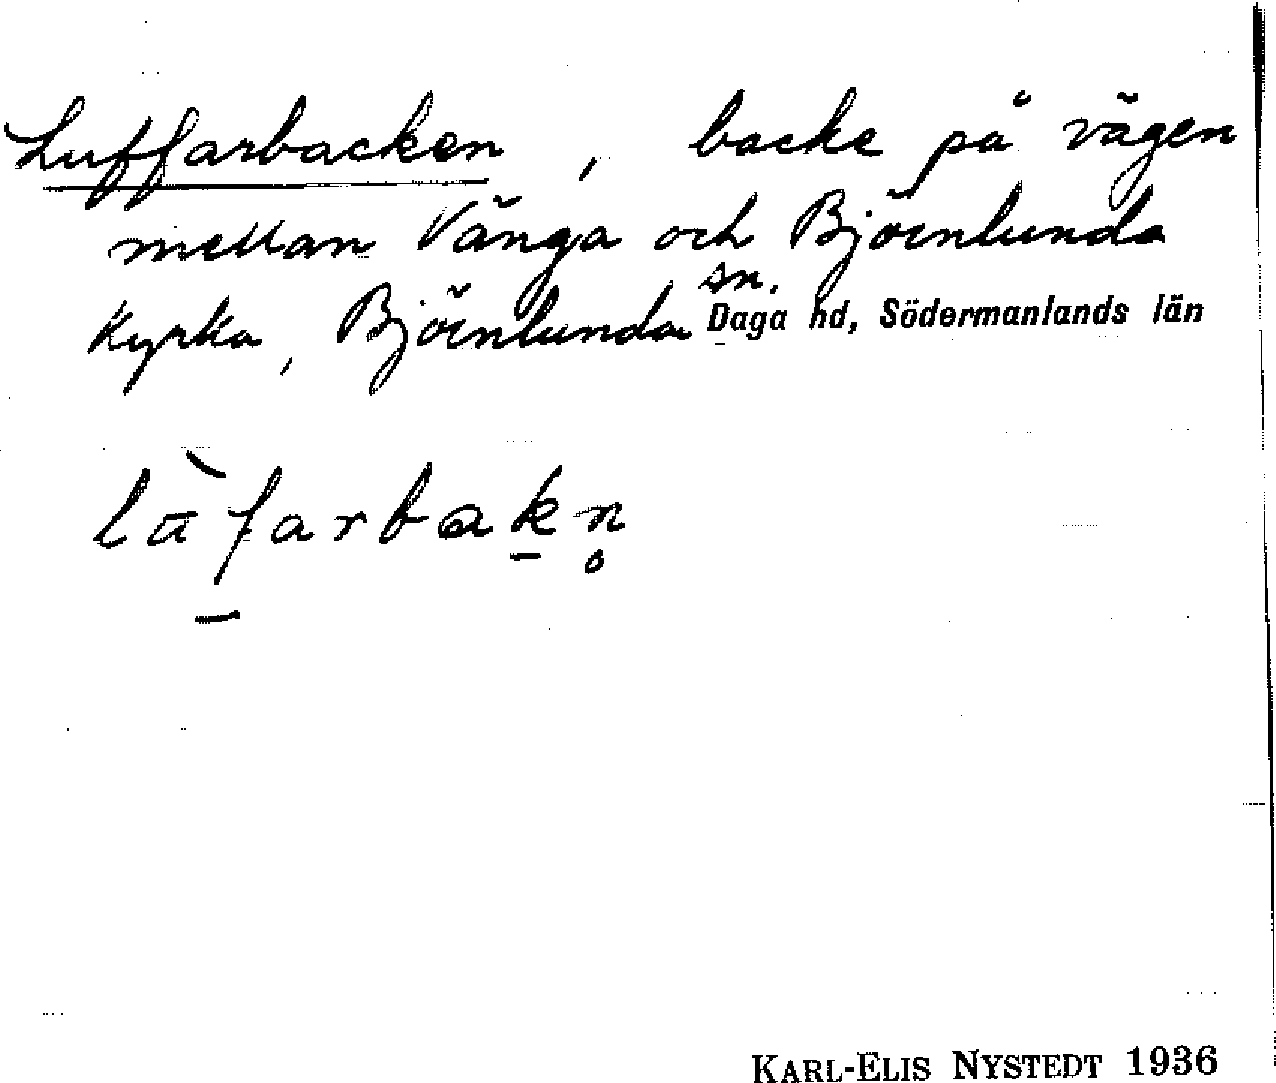 Luffarbacken, backe på vägen
mellan Vänga och Björnlunda
kyrka, Björnlunda sn. Daga hd, Södermanlands län
lùfarbakn̥
KARL-ELIS NYSTEDT 1936